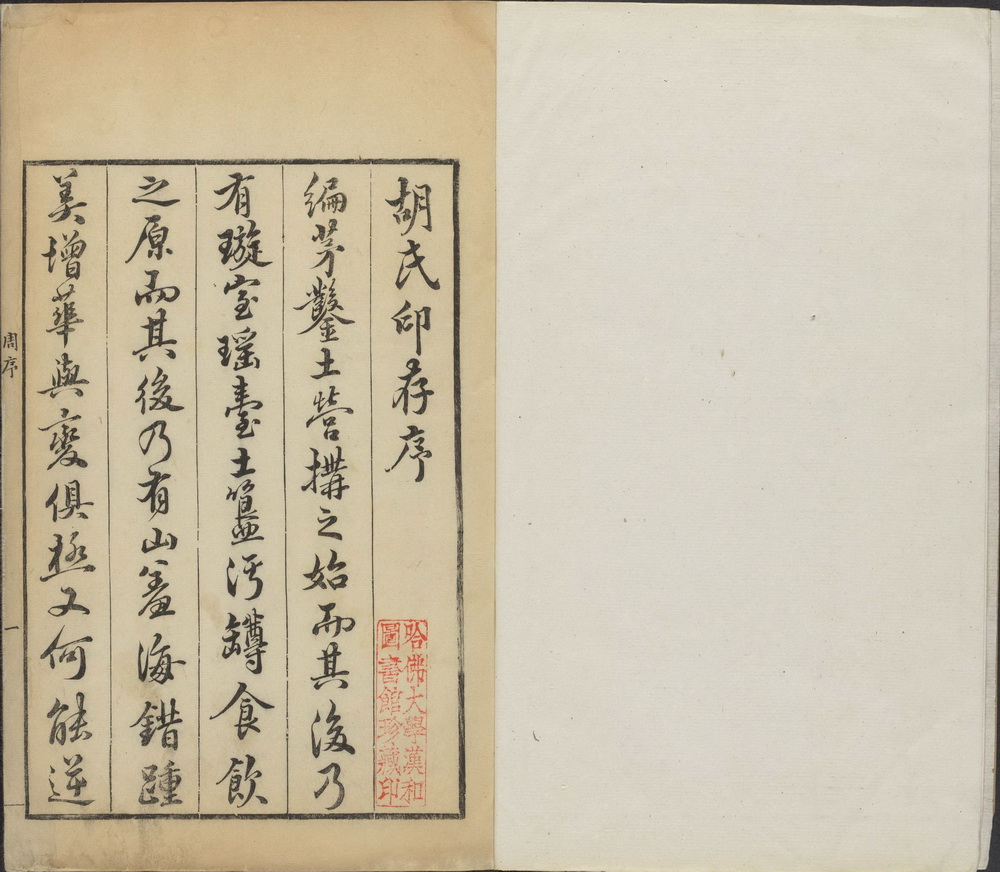 胡氏印存序
編茅鑿土營搆之始而其後乃
有璇室瑶臺土簋汙罇食飲
之原而其後乃有山羞海錯踵
美增華與變俱極又何能逆
周序
一
哈佛大學漢和
圖書館珍藏印